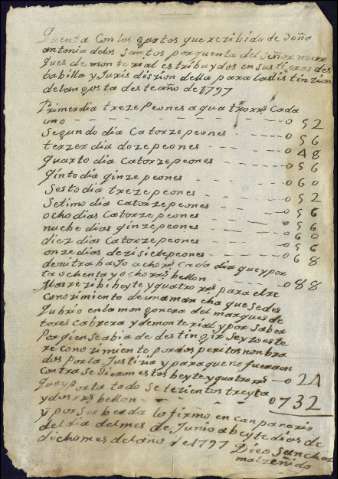 Quenta Con los gastos que e rezibido de Señor
antonia delos Santos por quenta del Señor marq
ques de mon tereal estribuydos en sus tieras des
babilla y Juris dizion della para la distinzion
de langosta deste año de 1797
Primer dia treze Peones a quatro rs Cada
uno - - - - 0 52
Segundo dia Catorze peones - - - 0 56
terzer dia doze peones - - - 0 48
quarto dia Catorze peones - - - 0 56
Qinto dia qinze peones - - - 0 60
Sesto dia treze peones - - - 0 52
Setimo dia Catorze peones - - - 0 56
ocho dias Catorze peones - - - 0 56
nuebe dias qinze peones - - - 0 60
diez dias Catorze peones - - - 0 56
onze dias dezisiete peones - - - 0 68
de mi trabajo a ocho rs Cada dia que ypor
ta ochenta y ocho rs bellon - - - 0 88
Mas rezibi beyte y quatro rs para el re
Conozimiento de una man cha que se des
Cubrio en la mon gonera del marques de
tores Cabrera y de mon te rial y por saber
Por qien se abia de destingir se yzo este
re conozimiento por dos peritos nonbra
dos Por la Justizia y para que no fueran en
Contra se dieran estos beyte y quatro rs - 0 24
Que yporta todo Setezientos treyta
y dos rs bellon - - - 0 732
y por ser berda lo firmo en Canpanario
del dia del mes de Junio a beyte dias de
dicho mes del año de 1797 Diego Sanchez